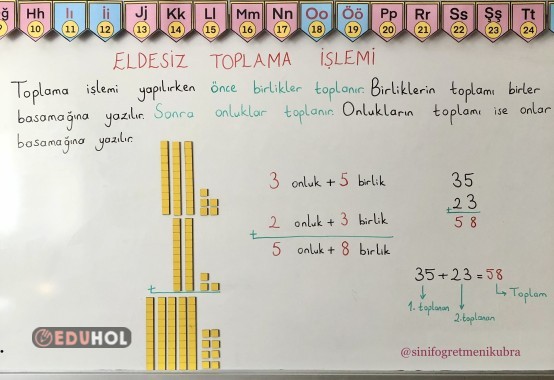 ğ Hh Iı İi Jj Kk Ll Mm Nn Oo Öö Pp Rr Ss Şş Tt
10 11 12 13 14 15 16 17 18 19 20 21 22 23 24
ELDESİZ TOPLAMA İŞLEMİ
Toplama işlemi yapılırken önce birlikler toplanır. Birliklerin toplamı birler
basamağına yazılır. Sonra onluklar toplanır. Onlukların toplamı ise onlar
basamağına yazılır.
3 onluk + 5 birlik
2 onluk + 3 birlik
+
5 onluk + 8 birlik
35
+ 23
58
+
35 + 23 = 58
1. toplanan
2. toplanan
Toplam
EDUHOL
@sinifogretmenikubra